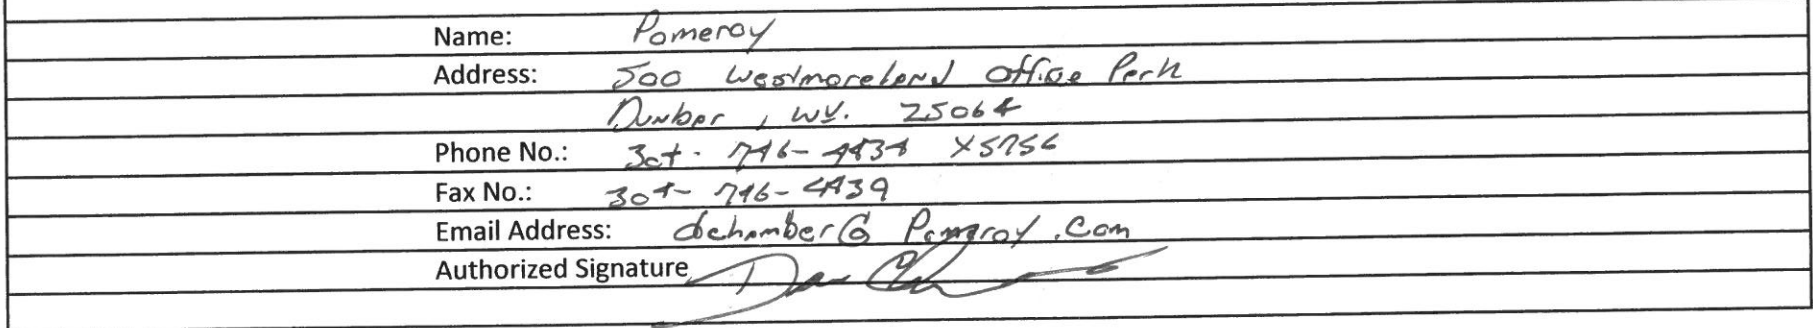 Name: Pomeroy
Address: 500 Westmoreland Office Park
Dunbar, WV. 25064
Phone No.: 304-746-4434 X5756
Fax No.: 304-746-4439
Email Address: dchamber@Pomeroy.com
Authorized Signature